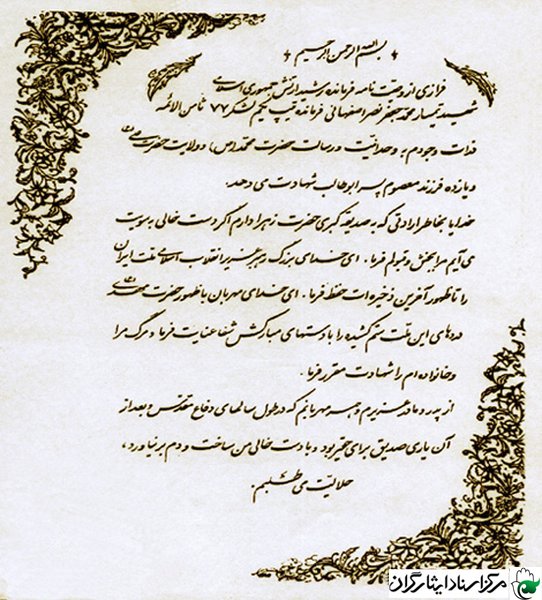 بسم الله الرحمن الرحیم
فرازی از وصیت نامه فرمانده رشید ارتش جمهوری اسلامی
شهید تیمسار محمد جعفر نصر اصفهانی فرمانده تیپ یکم لشکر ۷۷ ثامن الائمه
ذرات وجودم به وحدانیت و رسالت حضرت محمد (ص) و ولایت حضرت علی (ع)
و یازده فرزند معصوم پسر ابوطالب شهادت می دهد.
خدایا بخاطر ارادتی که به صدیقه کبری حضرت زهرا دارم اگر دست خالی به سویت
می آیم مرا ببخش و قبولم فرما. ای خدای بزرگ رهبر عزیز انقلاب اسلامی ملت ایران
را تا ظهور آخرین ذخیره ات حفظ فرما. ای خدای مهربان با ظهور حضرت مهدی (عج)
دردهای این ملت ستم کشیده را با دستهای مبارکش شفا عنایت فرما و مرگ مرا
و خانواده ام را شهادت مقرر فرما.
از پدر و مادر عزیزم و همسر مهربانم که در طول سالهای دفاع مقدس و بعد از
آن یاری صدیق برای حقیر بود و با دست خالی من ساخت و دم بر نیاورد،
حلالیت می طلبم.
مرکز اسناد ایثارگران